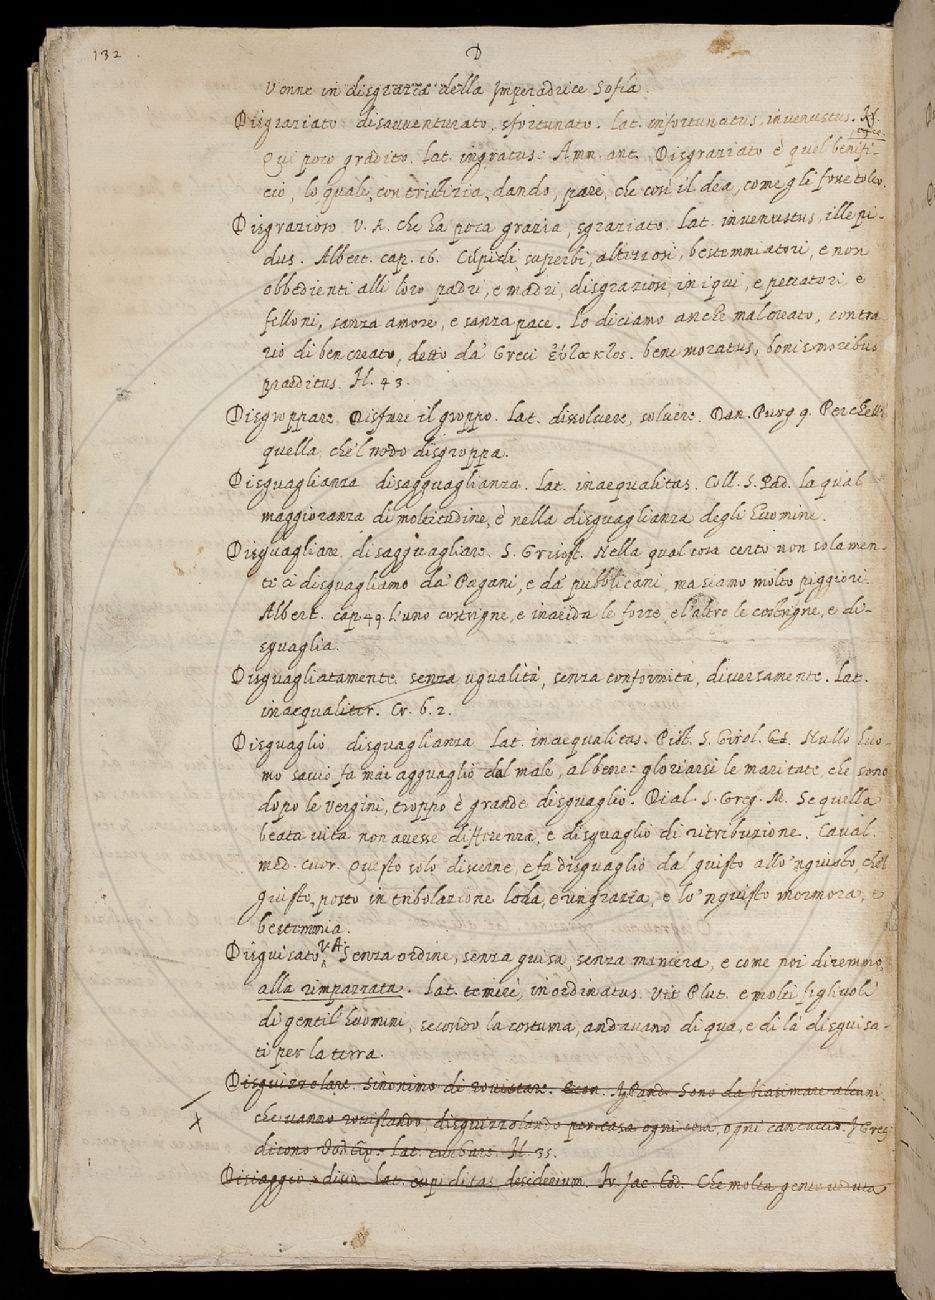 132
D
Venne in disgrazia della Imperadrice Sofia.
Disgraziato disavventurato, sfortunato. Lat. infortunatus, invenustus.
Qui poco gradito. Lat. ingratus: Amm. ant. Disgraziato è quel benifi-
cio, lo quale, con tristizia, dando, pare, che così il dea, come gle fosse tolto.
Disgrazioso V. A. che ha poca grazia, sgraziato. Lat. invenustus, illepi-
dus. Albert. cap. 16. Cupidi, superbi, altizzosi, bestemmiatori, e non
obbedienti alli loro padri, e madri, disgraziosi, iniqui, e peccatori, e
felloni, sanza amore, e sanza pace. Lo diciamo anche malcreato, contra
rio di bencreato, detto da' Greci bene moratus, bonis moribus
praeditus. H. 43.
Disgroppare Disfare il groppo. Lat. dissolvere, solvere. Dan. Purg 9. Perch'ell'è
quella, che'l nodo disgroppa.
Disguaglianza disagguaglianza. Lat. inaequalitas. Coll. S. Pad. la qual
maggioranza di moltitudine, è nella disguaglianza degli huomini.
Disguagliare, disagguagliare. S. Grisost. Nella qual cosa certo non solamen-
te ci disguagliamo da' Pagani, e da' pubblicani, ma siamo molto piggiori.
Albert. cap. 49. L'uno costrigne, e inaridа le forze, e l'altro le costrigne, e di-
sguaglia.
Disguagliatamente. senza ugualità, senza conformità, diversamente. Lat.
inaequaliter. Cr. 6. 2.
Disguaglio disguaglianza Lat. inaequalitas. Pist. S. Girol. Nullo huo-
mo savio fa mai agguaglio dal male, al bene: gloriarsi le maritate, che sono
dopo le vergini, troppo è grande disguaglio. Dial. S. Greg. M. Se quella
beata vita non avesse differenza, e disguaglio di ritribuzione. Caval.
med. cuor. Questo solo discerne, e fa disguaglio dal giusto allo 'ngiusto, che'l
giusto, posto in tribolazione loda, e ringrazia, e lo 'ngiusto mormora, e
bestemmia.
Disguisato V. A. Senza ordine, senza guisa, senza maniera, e come noi diremmo,
alla rimpazzata. Lat. temere, inordinatus. Vit Plut. e molti figliuoli
di gentil' huomini, secondo la costuma, andavano di qua, e di là disguisa-
ti per la terra.
Disguizzolare. sinonimo di rovistare. Econ. Sono da biasimare alcuni,
che vanno rovistando, disguizzolando per casa ogni cosa, ogni cantuccio. I Greci
dicono Lat. turbare. H 35.
Disiaggio disio. Lat. cupiditas, desiderium. Fr. Jac. Tod. Che molta gente veduta